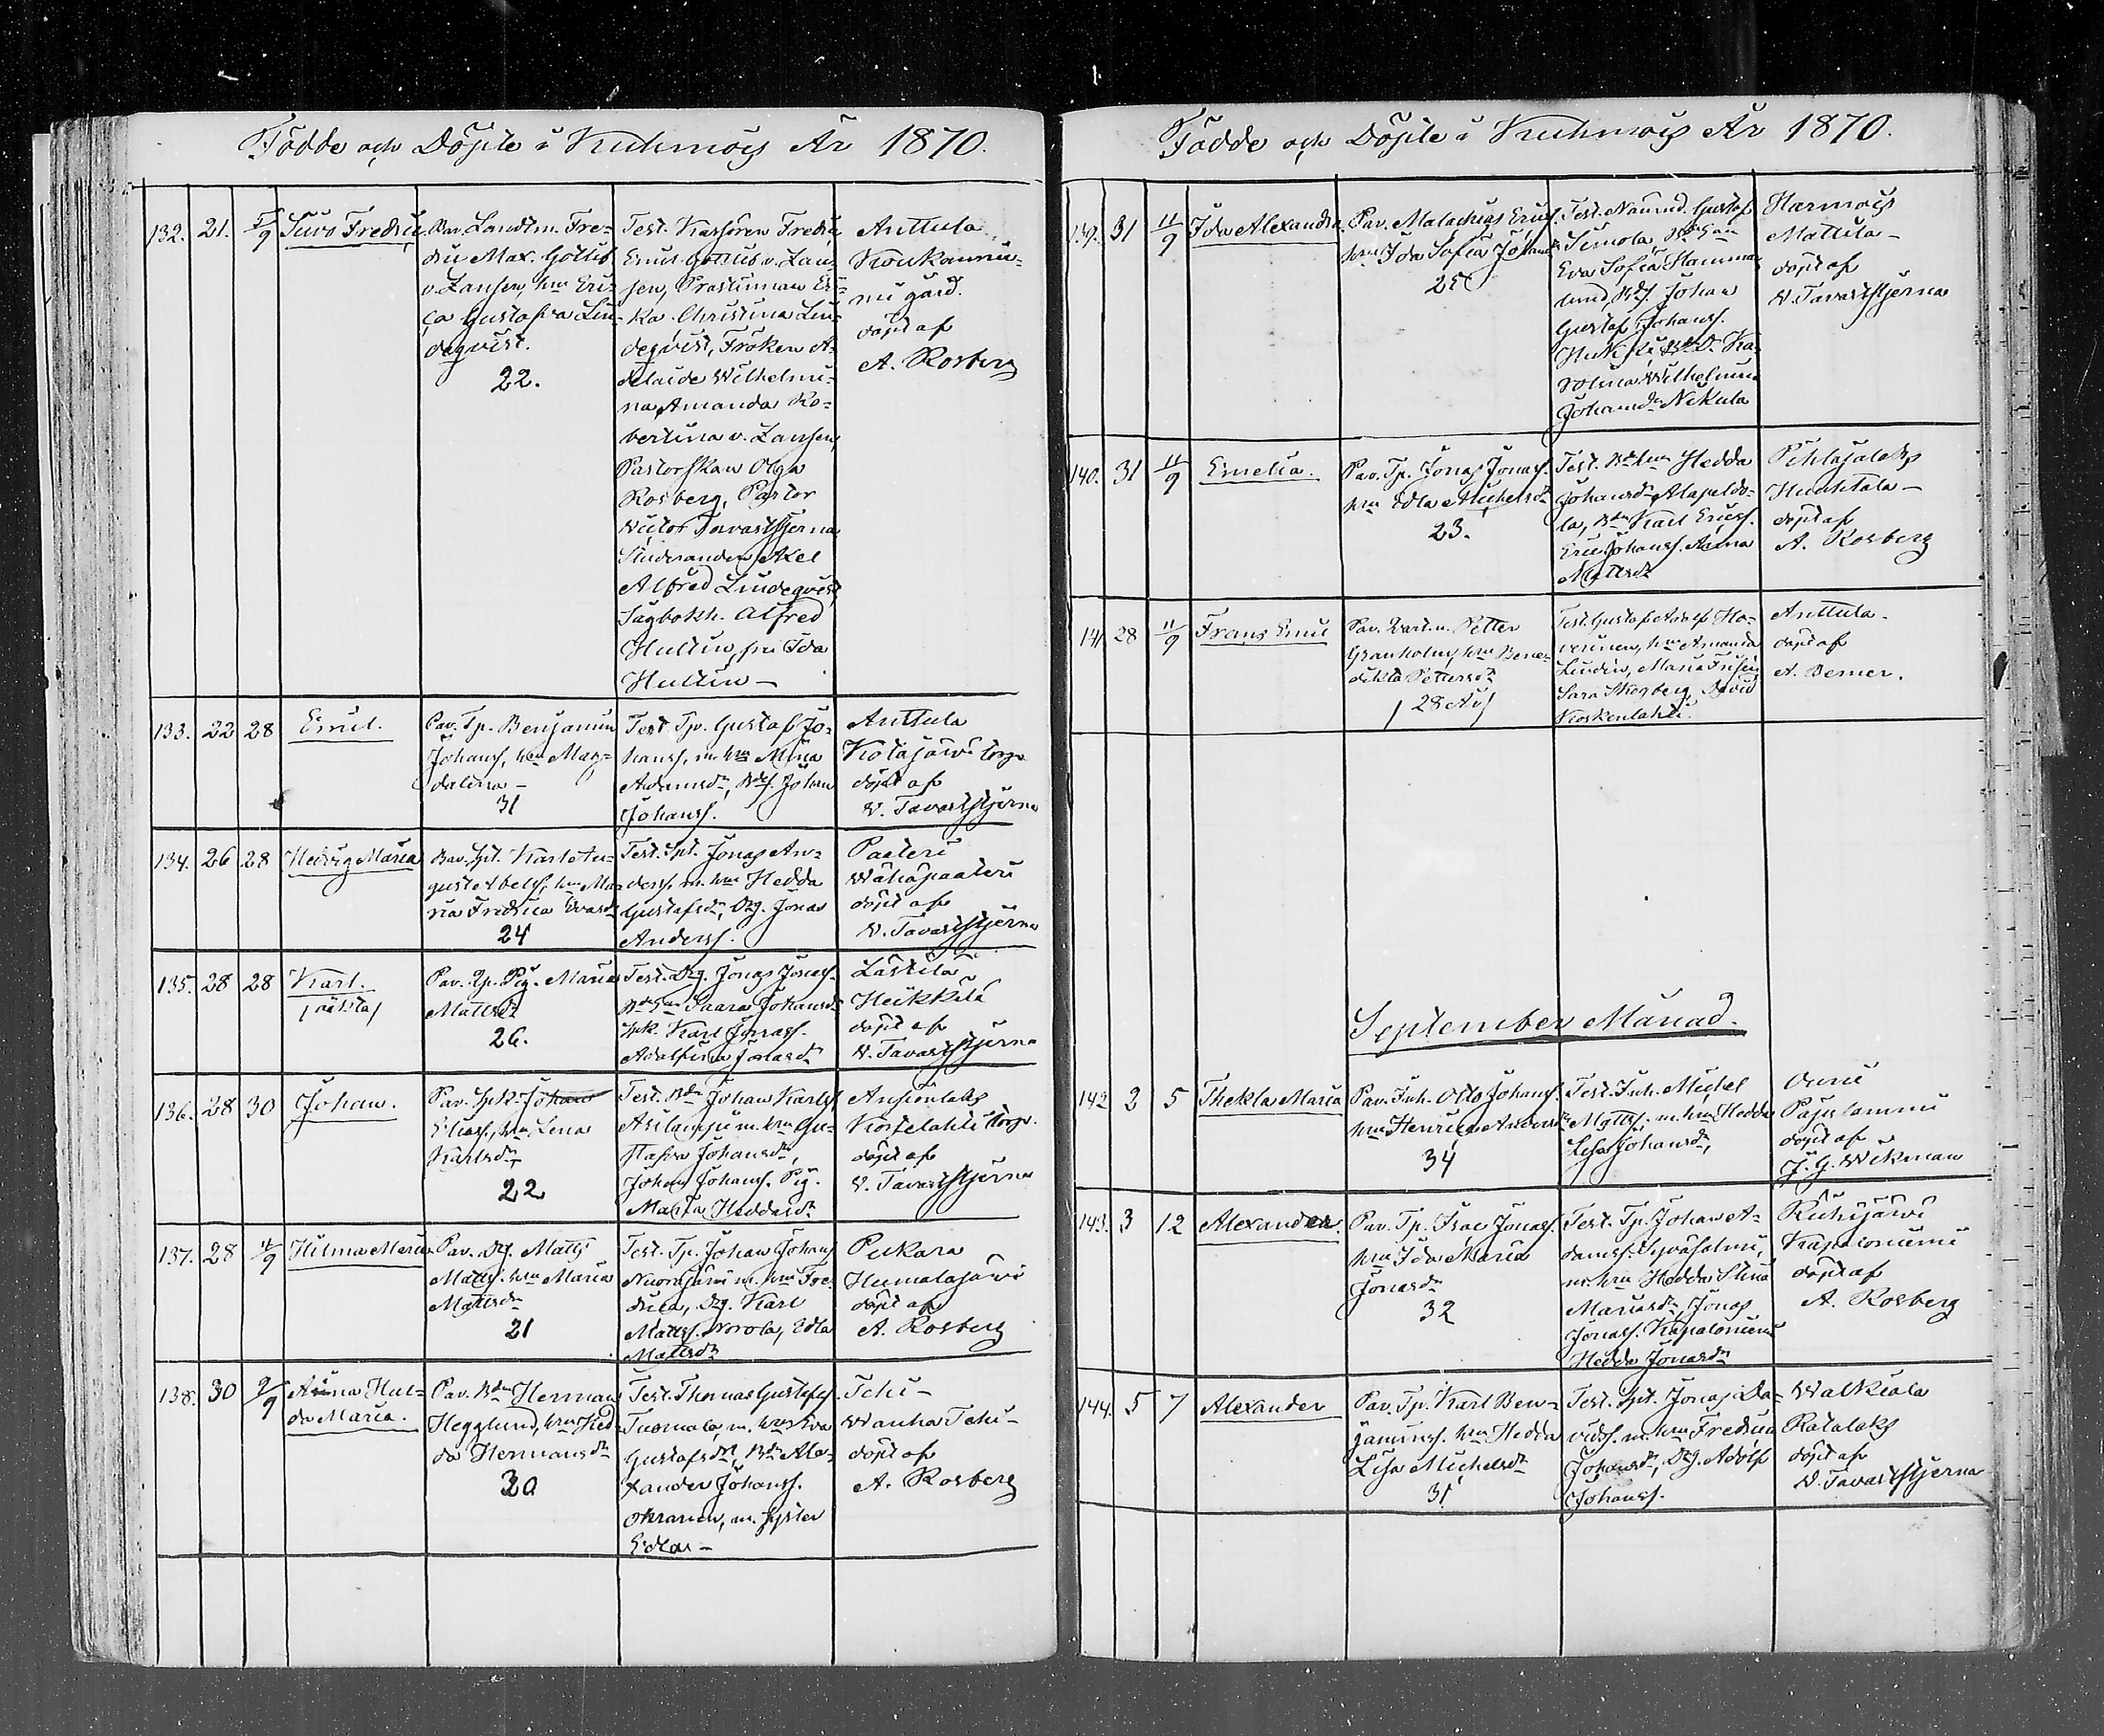 Födde och Döpte i Kuhmois År 1870.
132. 21. 5/9 Fredric
Pav. Landtm. Fre-
dric Max. Gotlib
v. Zansen, hu Eri-
ca Gustafva Lin-
deqvist.
22.
Test. Fredric
Emil Gottlib v. Zan-
sen, Prostinnan Eri-
ka Christina Lin-
deqvist, Fröken A-
delaide Wilhelmi-
na, Amanda Ro-
bertina v. Zansen,
Pastorskan Olga
Rosberg, Pastor
Victor Tavaststjerna
Studeranden Axel
Alfred Lindeqvist,
Sågbokh. Alfred
Hultin, fru Ida
Hultin —
Anttula
nii gård.
döpt af
A. Rosberg
133. 22 28 Emil.
Pav. Tp. Benjamin
Johans., hu Mag-
dalena —
31
Test. Tp. Gustaf Jo-
hanss. m. hu Mina
Adamsdr, Johan
Johanss.
Anttula
Kotajärvi torp
döpt af
V. Tavaststjerna
134. 26 28 Hedvig Maria
Karl Au-
gust Abels., hu Ma-
ria Fredrica
24
Test. Jonas An-
derss. m. hu Hedda
Gustafsdr, Drg. Jonas
Anderss.
Paateri
Wähäpaateri
döpt af
V. Tavaststjerna
135. 28 28 Karl.
/oäkta/
Pav. Pig. Maria
Mattsdr
26.
Test. Drg. Jonas Jonass.
Saara Johansdr
Karl Jonass.
Adolfina Jonasdr
Lästilä
Heikkilä
döpt af
V. Tavaststjerna
136. 28 30 Johan.
Pav. Johan
Eliass., hu Lena
Karlsdr
22
Test. Johan Karlss.
m. hu Gu-
stafva Johansdr,
Johan Johanss. Pig.
Maria Heddasdr
döpt af
V. Tavaststjerna
137. 28 11/9 Hilma Maria
Pav. Drg. Matts
Matts. hu Maria
Mattsdr
21
Test. Tp. Johan Johans
m. hu Fre-
drica, Drg. Karl
Matts. Norola, Edla
Mattsdr
Pukara
Humalajärvi
döpt af
A. Rosberg
138. 30 2/9 Anna Hul-
da Maria.
Pav. Herman
Hegglund, hu Hed-
da Hermansdr
30
Test. Thomas Gustafss.
Tuomala, m. hu Eva
Gustafsdr, Ale-
xander Johanss.
m. syster
Edla —
Tehi —
Wanha Tehi —
döpt af
A. Rosberg
Födde och Döpte i Kuhmois År 1870.
139. 31 11/9 Ida Alexandra
Pav. Malachias Ericss.
hu Ida Sofia Johansdr
25
Test. Gustaf
Simola,
Eva Sofia
Johan
Gustaf Johanss.
Ka-
rolina Wilhelmina
Johansdr Nikula
Harmois
Mattila —
döpt af
V. Tavaststjerna
140. 31 11/9 Emelia.
Pav. Tp. Jonas Jonass.
hu Edla Michelsdr
23.
Test. Hedda
Johansdr
la, Karl Ericss.
Eric Johanss. Anna
Mattsdr
Pihlajalaks
Huhtala —
döpt af
A. Rosberg
141 28 11/9 Frans Emil
Pav. Petter
Granholm, hu Bene-
dikta Pettersdr
/28 År/
Test. Gustaf Adolf Ho-
verinen, hu Amanda
Lindin, Maria
Sara Skogberg, David
Koskenlahti.
Anttula.
döpt af
A. Berner.
September Månad.
142 2 5 Thekla Maria
Pav. Inh. Otto Johans.
hu Henrica Andersdr
34
Test. Inh. Michel
Matts., m. hu Hedda
Lisa Johansdr,
döpt af
J. G. Wikman
143. 3 12 Alexander.
Pav. Tp. Isac Jonass.
hu Ida Maria
Jonasdr
32
Test. Tp. Johan A-
damss. Syväsalmi,
m. hu Hedda Stina
Mariasdr, Jonas
Jonass. Kapaloniemi
Hedda Jonasdr
Riihijärvi
Kapaloniemi
döpt af
A. Rosberg
144. 5 7 Alexander
Pav. Tp. Karl Ben-
jamins. hu Hedda
Lisa Michelsdr
31
Test. Jonas Da-
vidss. m. hu Fredrica
Johansdr, Drg. Adolf
Johanss.
Walkiala
döpt af
V. Tavaststjerna